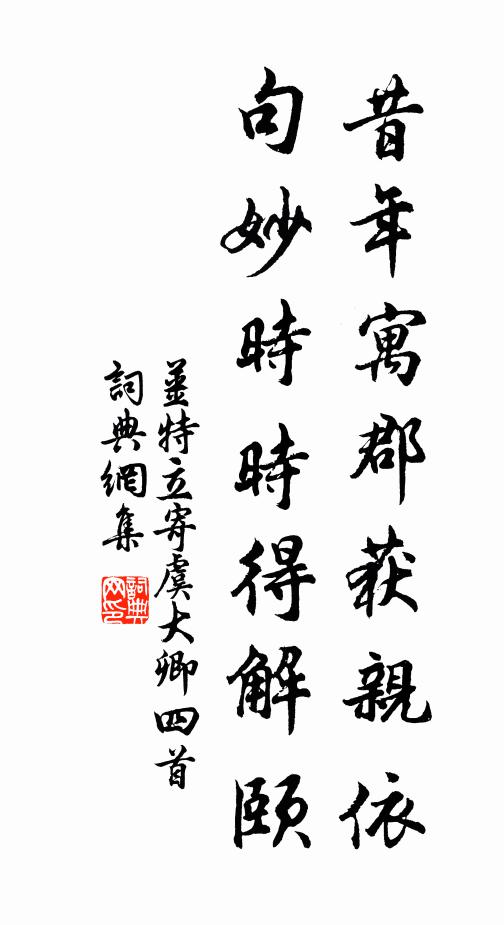 昔年寓郡获親依
句妙時時得解頤
姜特立寄虞大卿四首
詞典網集
詞典网印